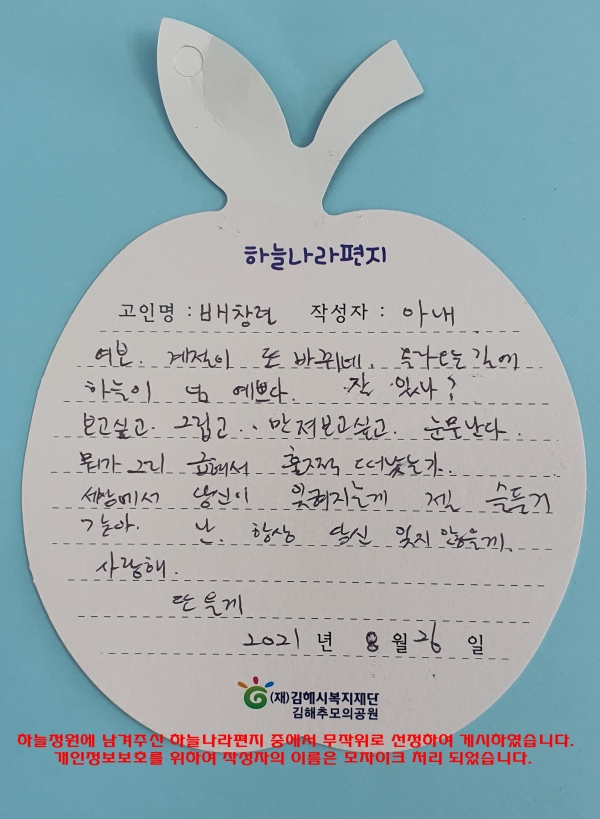 하늘나라편지
고인명 : 배창련 작성자 : 아내
여보. 계절이 또 바뀌네. 올라오는 길에
하늘이 넘 예쁘다. 잘 있나?
보고싶고. 그립고.. 만져보고싶고. 눈물난다.
뭐가 그리 급해서 훌쩍 떠났는가.
세상에서 당신이 잊혀지는게 제일 슬픈거
같아. 난. 항상 당신 잊지 않을께.
사랑해.
또 올게
2021 년 8 월 26 일
(재)김해시복지재단
김해추모의공원
하늘정원에 남겨주신 하늘나라편지 중에서 무작위로 선정하여 게시하였습니다.
개인정보보호를 위하여 작성자의 이름은 모자이크 처리 되었습니다.